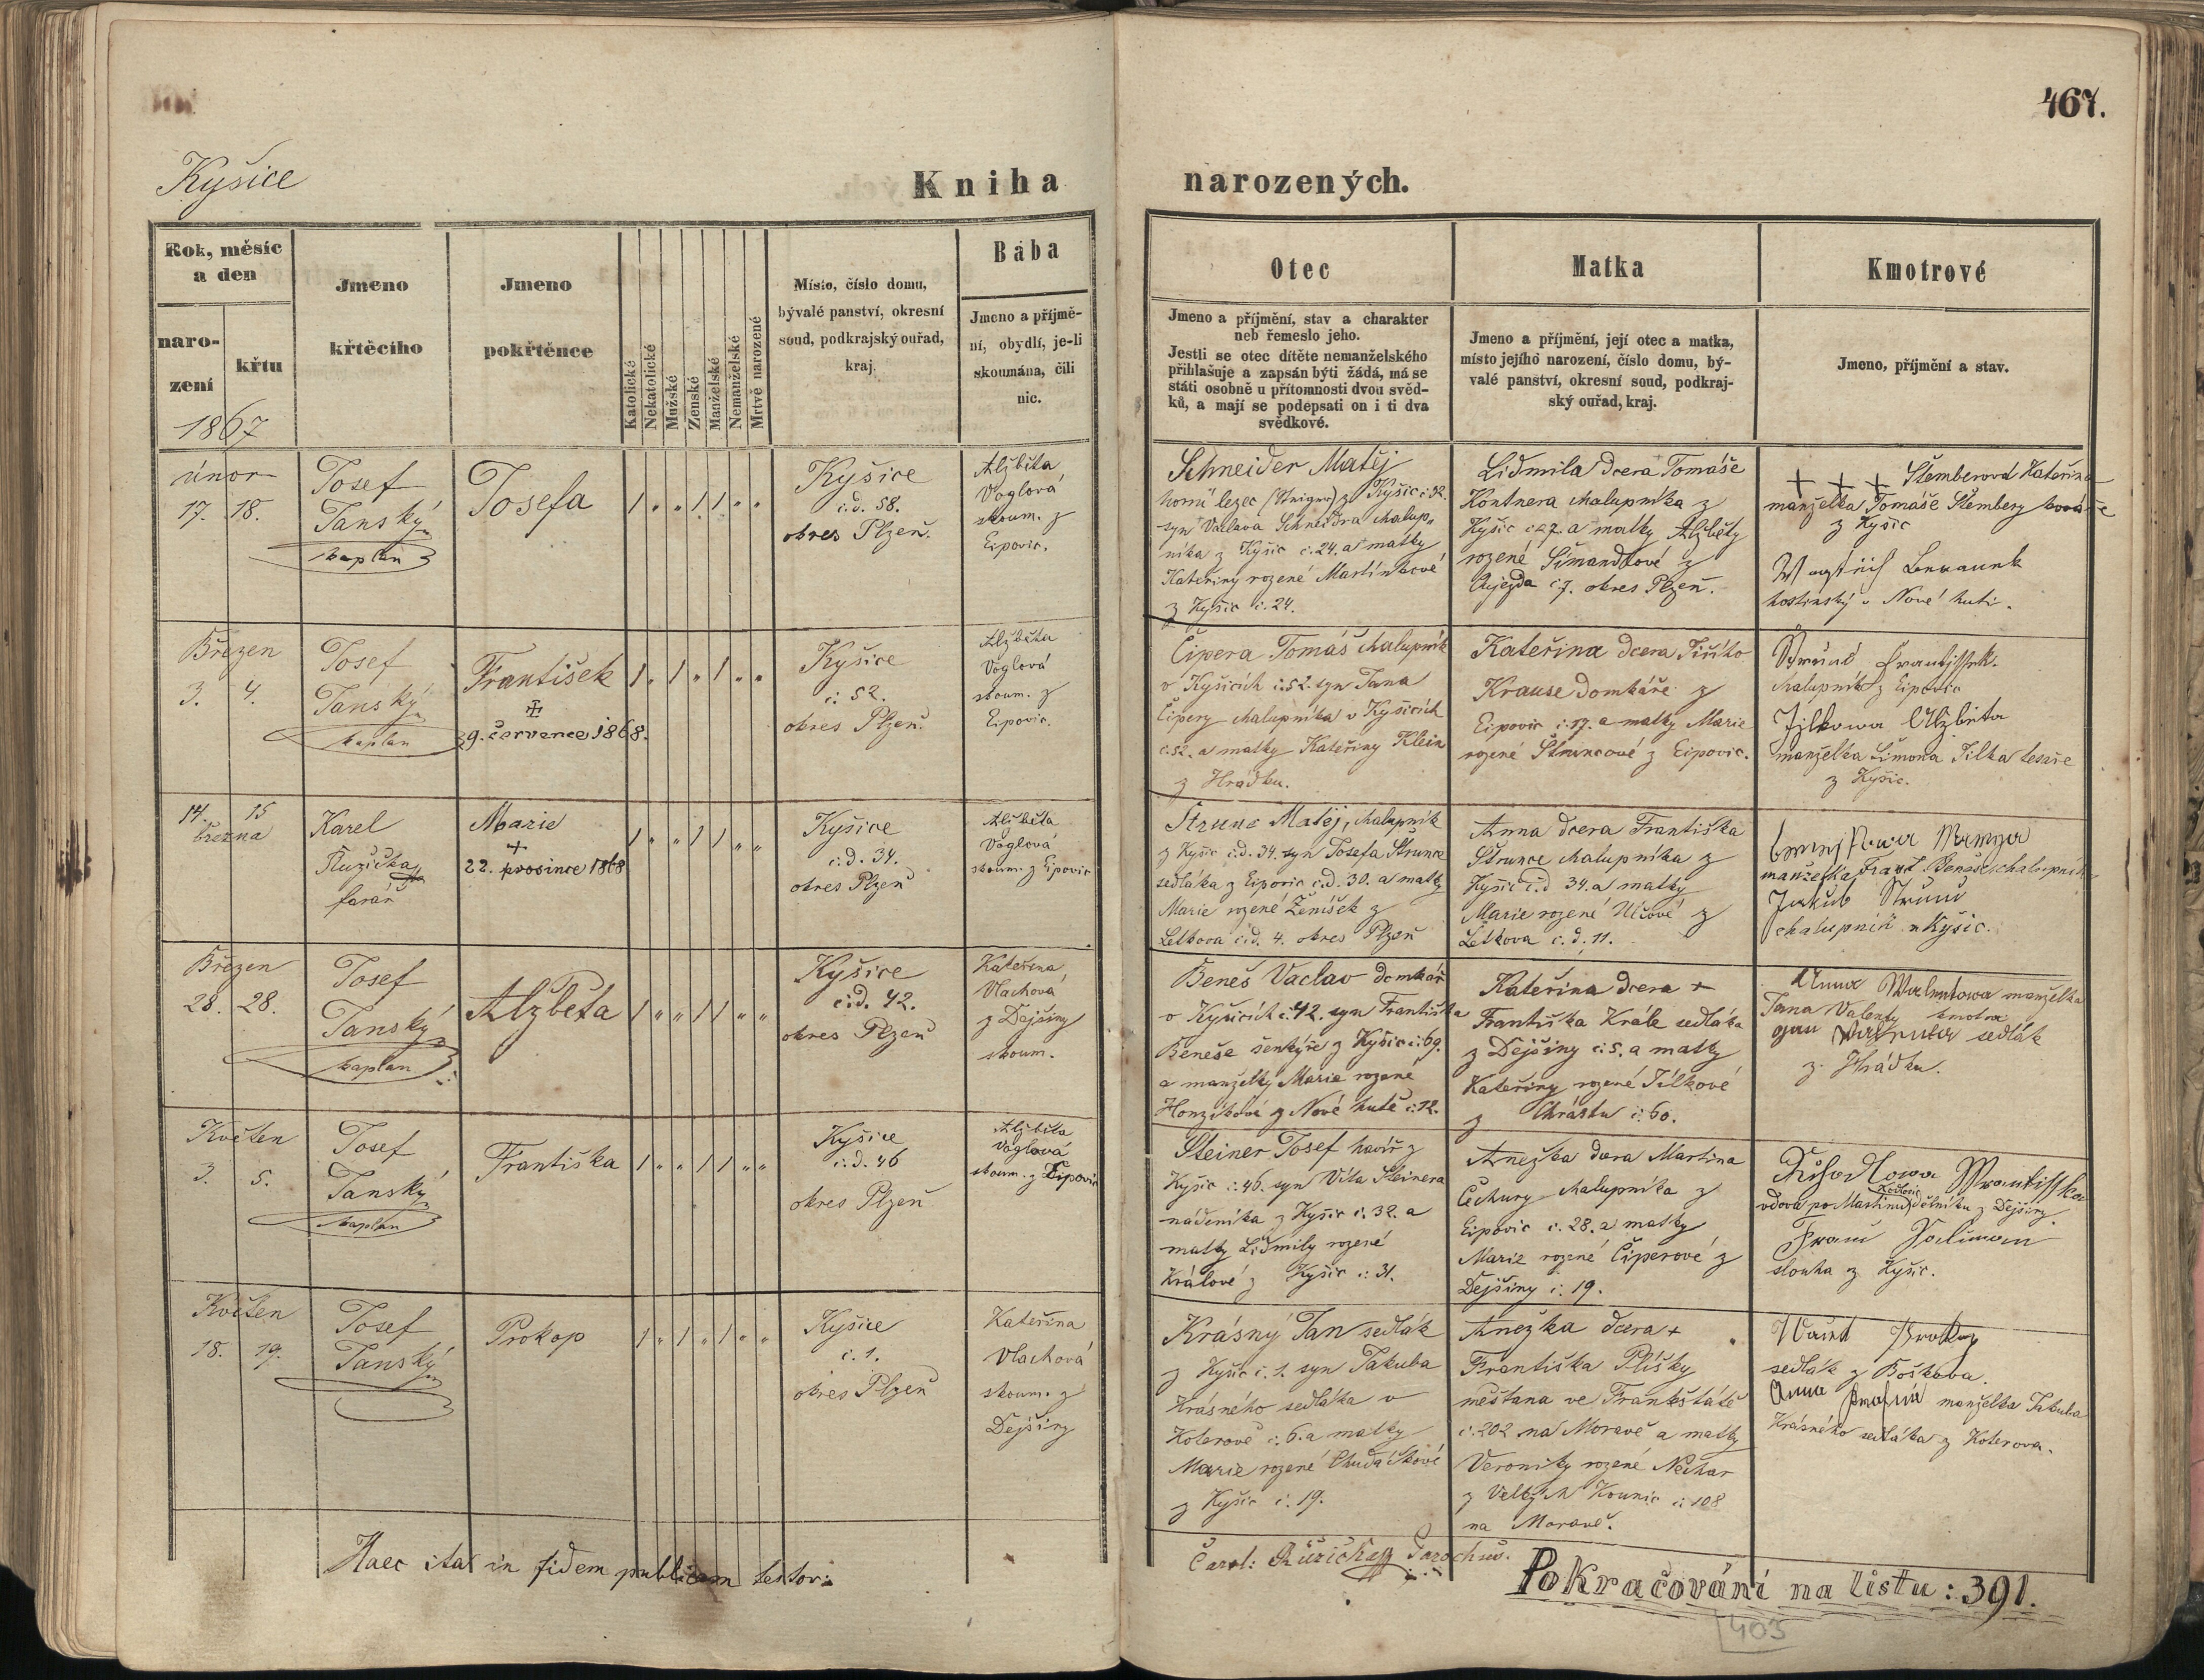 467.
Kyšice
Kniha narozených.
Rok, měsíc
a den
naro-
zení
křtu
1867
Jmeno
křtěcího
Jmeno
pokřtěnce
Katolické
Nekatolické
Mužské
Zenské
Manželské
Nemanželské
Mrtvě narozené
Místo, číslo domu,
bývalé panství, okresní
soud, podkrajský ouřad,
kraj.
Bába
Jmeno a příjmě-
ní, obydlí, je-li
skoumána, čili
nic.
Otec
Jmeno a příjmění, stav a charakter
neb řemeslo jeho.
Jestli se otec dítěte nemanželského
přihlašuje a zapsán býti žádá, má se
státi osobně u přítomnosti dvou svěd-
ků, a mají se podepsati on i ti dva
svědkové.
Matka
Jmeno a příjmění, její otec a matka,
místo jejího narození, číslo domu, bý-
valé panství, okresní soud, podkraj-
ský ouřad, kraj.
Kmotrové
Jmeno, příjmění a stav.
únor
17. 18.
Josef
Janský
kaplan
Josefa
1 " " 1 1 " "
Kyšice
č.d. 58.
okres Plzeň.
Alžběta
Voglová
skoum. z
Eipovic.
Schneider Matěj
z Kyšic č. 32.
syn Vaclava Schneidra chalup-
níka z Kyšic č. 24. a matky
Kateřiny rozené Martínkové
z Kyšic č. 24.
Lidmila dcera Tomáše
Kontnera chalupníka z
Kyšic a matky Alžběty
rozené Šimandlové z
Aujezda č 7. okres Plzeň.
+ + + Štemberová Kateřina
manželka Tomáše Štemberg kováře
z Kyšic
hostinský v Nové huti.
Březen
3. 4.
Josef
Janský
kaplan
František
+
29. července 1868.
1 " 1 " 1 " "
Kyšice
č. 52.
okres Plzeň.
Alžběta
Voglová
skoum. z
Eipovic.
Čipera Tomáš chalupník
v Kyšicích č. 52. syn Jana
Čipery chalupníka v Kyšicích
č. 52. a matky Kateřiny Klein
z Hrádku.
Kateřina dcera Jiřího
Krause domkáře z
Eipovic č. 17. a matky Marie
rozené Štruncové z Eipovic.
Frantissek.
chalupník z Eipovic
Jílkowa Alžbieta
manželka Šimona Jílka tesaře
z Kyšic.
14. 15
března
Karel
Růžička
farář
Marie
+
22. prosince 1868
1 " " 1 1 " "
Kyšice
č.d. 34.
okres Plzeň
Alžběta
Voglová
skoum. z Eipovic
Štrunc Matěj, chalupník
z Kyšic č.d. 34. syn Josefa Štrunce
sedláka z Eipovic č.d. 30. a matky
Marie rozené Ženíšek z
Letkova č.d. 4. okres Plzeň
Anna dcera Františka
Štrunce chalupníka z
Kyšic č.d 34. a matky
Marie rozené Ulčové z
Letkova č.d. 11.
manželka Frant. Beneše chalupník
Jakub Strunc
chalupník z Kyšic.
Březen
28. 28.
Josef
Janský
kaplan
Alžběta
1 " " 1 1 " "
Kyšice
č.d. 42.
okres Plzeň
Kateřina
Vlachová
z Dejšiny
skoum.
Beneš Vaclav domkář
v Kyšicích č. 42. syn Františka
Beneše šenkýře z Kyšic č. 69.
a manželky Marie rozené
Honzíkové z Nové hutě č. 12.
Kateřina dcera +
Františka Krále sedláka
z Dejšiny č. 5. a matky
Kateřiny rozené Jílkové
z Chrástu č. 60.
Anna Walentowa manželka
Jana Valenty kmotra
sedlák
z Hrádku.
Květen
3. 5.
Josef
Janský
kaplan
Františka
1 " " 1 1 " "
Kyšice
č.d. 46
okres Plzeň
Alžběta
Voglová
skoum. z Eipovic
Steiner Josef havíř z
Kyšic č. 46. syn Víta Steinera
nádeníka z Kyšic č. 32. a
matky Lidmily rozené
Králové z Kyšic č. 31.
Anežka dcera Martina
Čechury chalupníka z
Eipovic č. 28. a matky
Marie rozené Čiperové z
Dejšiny č. 19.
Frantisska
vdova po Martinu dělníku z Dejšiny.
slouha z Kyšic.
Květen
18. 19.
Josef
Janský
Prokop
1 " 1 " 1 " "
Kyšice
č. 1.
okres Plzeň
Kateřina
Vlachová
skoum. z
Dejšiny
Krásný Jan sedlák
z Kyšic č. 1. syn Jakuba
Krásného sedláka v
Koterově č. 6. a matky
Marie rozené Chudáčkové
z Kyšic č. 19.
Anežka dcera +
Františka Plíšky
měšťana ve Frankštátě
č. 202 na Moravě a matky
Veroniky rozené Nechar
z Velkých Kounic č. 108
na Moravě.
Prokop
sedlák z Boškova.
Anna manželka Jakuba
Krásného sedláka z Koterova.
Haec ita in fidem publicam testor:
Carol: Růžička Parochus.
Pokračování na listu: 391.
403